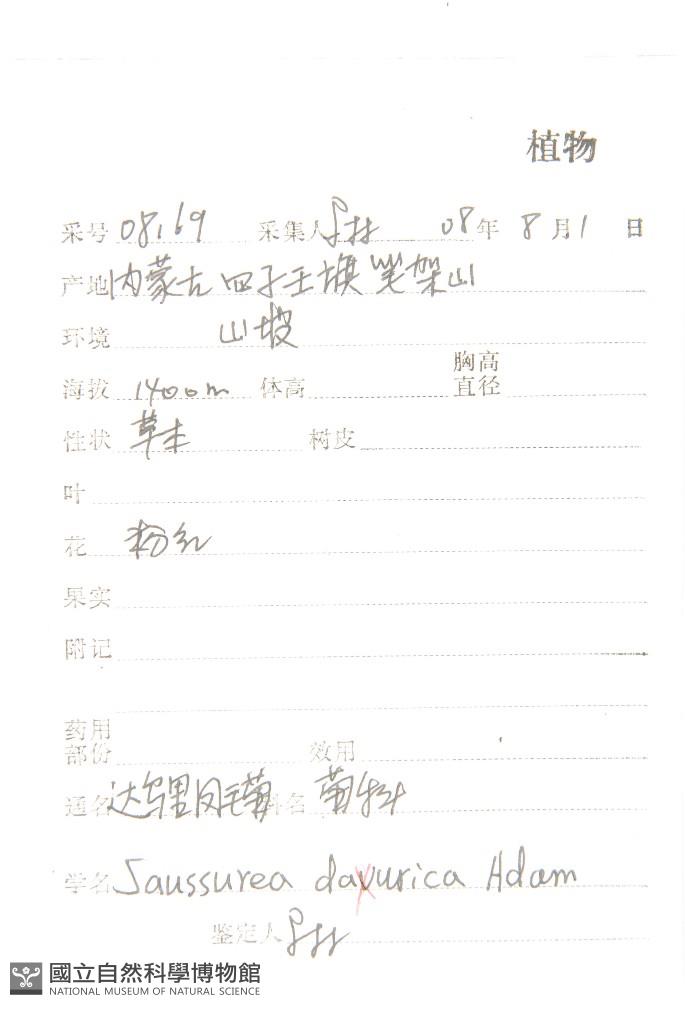 植物
采号 08.169 采集人 08年 8月1日
产地 内蒙古四子王旗笔架山
环境 山坡
海拔 1400m 体高 胸高直径
性状 草本 树皮
叶
花 粉红
果实
附记
药用部份 效用
通名 达乌里风毛菊 科名 菊科
学名 Saussurea davurica Adam
鉴定人
國立自然科學博物館
NATIONAL MUSEUM OF NATURAL SCIENCE